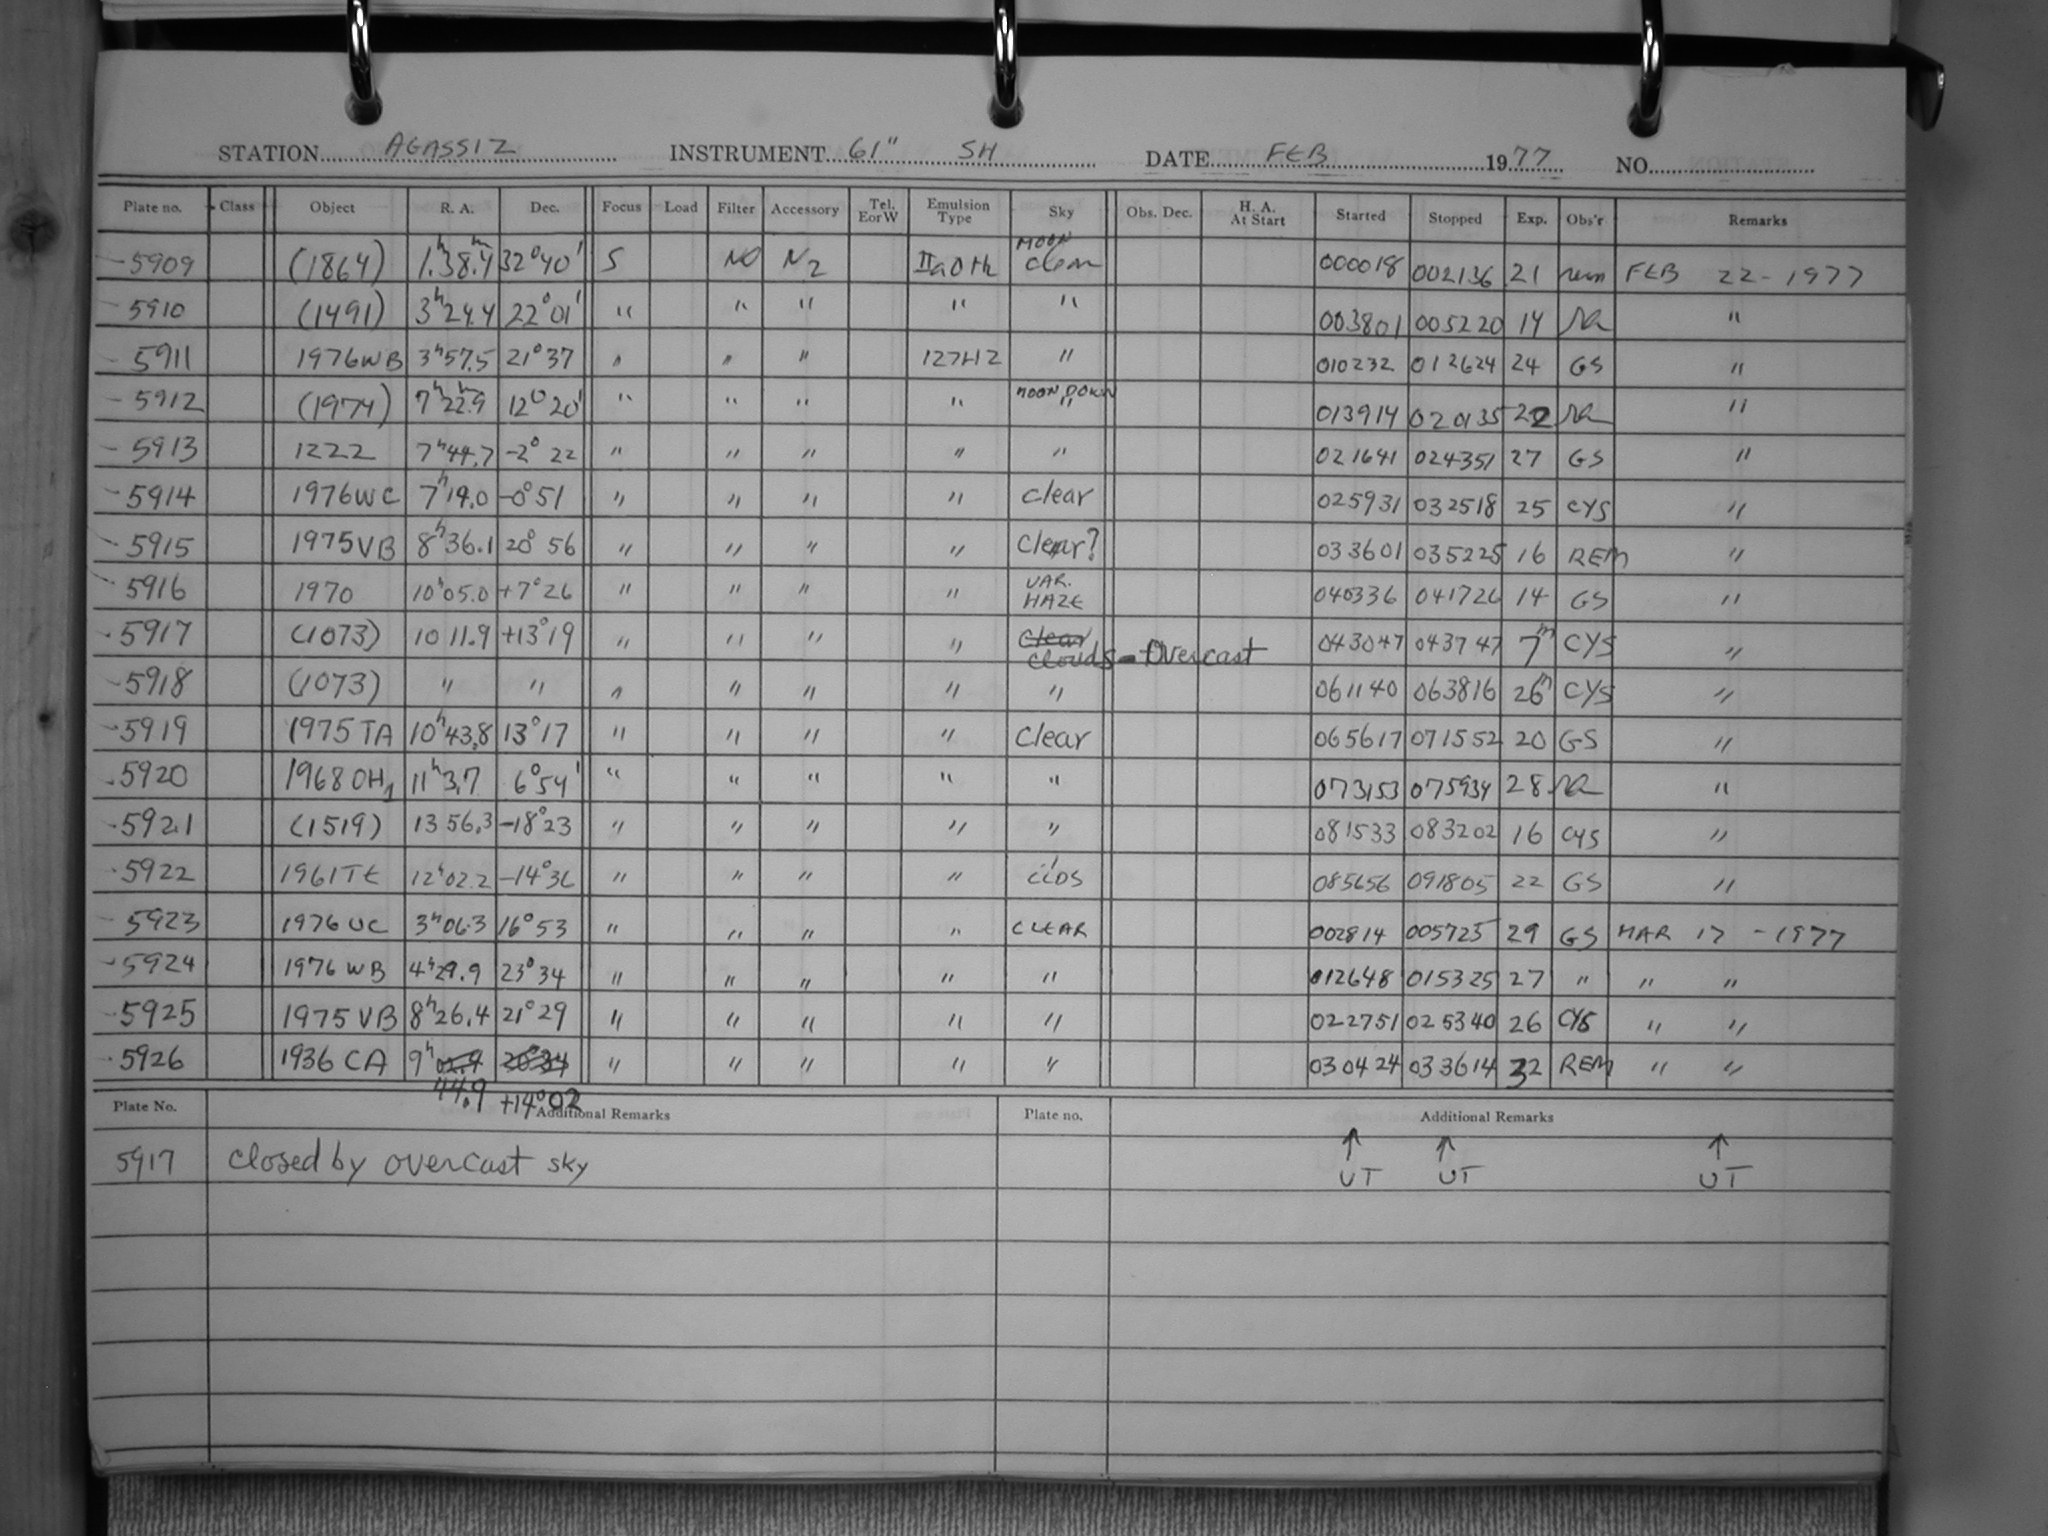 STATION AGASSIZ INSTRUMENT 61" SH DATE FEB 1977 NO.
Plate no. Class Object R. A. Dec. Focus Load Filter Accessory Tel. E or W Emulsion Type Sky Obs. Dec. H. A. At Start Started Stopped Exp. Obs'r Remarks
5909 (1864) 1h38.4m 32°40' S NO N2 IIaO th MOON clear 000018 002136 21 rem FEB 22-1977
5910 (1491) 3h24.4 22°01' " " " " " 003801 005220 14 "
5911 1976WB 3h57.5 21°37 " " " 127H2 " 010232 012624 24 GS "
5912 (1974) 7h22.9m 12°20' " " " " MOON DOWN " 013914 020135 22 "
5913 1222 7h44.7 -2°22 " " " " " 021641 024351 27 GS "
5914 1976WC 7h19.0 -0°51 " " " " clear 025931 032518 25 CYS "
5915 1975VB 8h36.1 20°56 " " " " clear? 033601 035225 16 REM "
5916 1970 10h05.0 +7°26 " " " " VAR. HAZE 040336 041726 14 GS "
5917 (1073) 10 11.9 +13°19 " " " " clear clouds - Overcast 043047 043747 7m CYS "
5918 (1073) " " " " " " " 061140 063816 26m CYS "
5919 1975TA 10h43.8 13°17 " " " " clear 065617 071552 20 GS "
5920 1968OH1 11h3.7 6°54' " " " " " 073153 075934 28 "
5921 (1519) 13 56.3 -18°23 " " " " " 081533 083202 16 CYS "
5922 1961TE 12h02.2 -14°36 " " " " CLDS 085656 091805 22 GS "
5923 1976UC 3h06.3 16°53 " " " " CLEAR 002814 005725 29 GS MAR 17 -1977
5924 1976WB 4h29.9 23°34 " " " " " 012648 015325 27 " " "
5925 1975VB 8h26.4 21°29 " " " " " 022751 025340 26 CYS " "
5926 1936CA 9h 02.4 20°34 " " " " " 030424 033614 32 REM " "
44.9 +14°02
Plate No. Additional Remarks Plate no. Additional Remarks
5917 closed by overcast sky ↑ ↑ ↑
UT UT UT